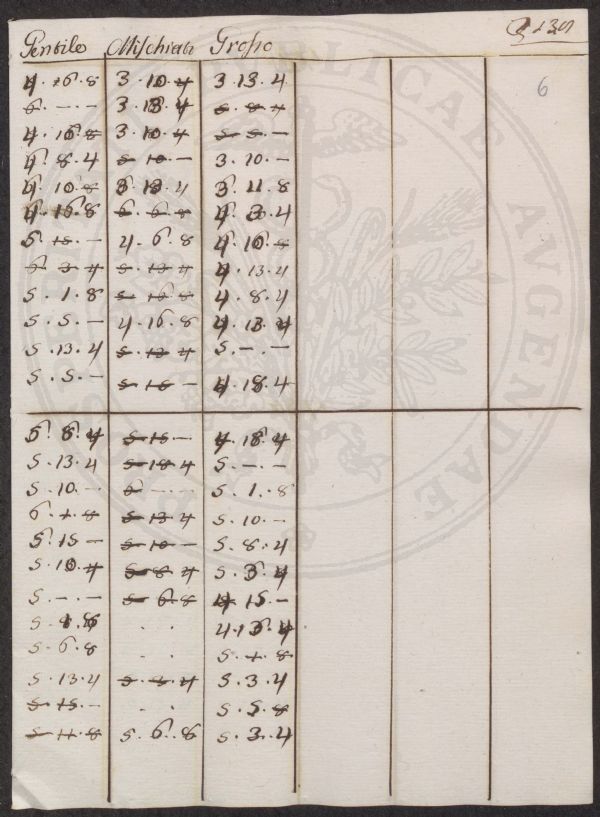 Gentile Mischiati Grosso
6
4. 16. 8 3. 10. 4 3. 13. 4
6. –. – 3. 13. 4 5. 8. 4
4. 16. 8 3. 10. 4 5. 5. –
4. 8. 4 5. 10. – 3. 10. –
4. 10. 8 3. 11. 8
4. 16. 8 6. 6. 8 4. 3. 4
5. 15. – 4. 6. 8 4. 16. 8
6. 3. 4 5. 13. 4 4. 13. 4
5. 1. 8 5. 16. 8 4. 8. 4
5. 5. – 4. 16. 8 4. 13. 4
5. 13. 4 5. 13. 4 5. –. –
5. 5. – 5. 15. – 4. 18. 4
5. 15. – 4. 18. 4
5. 13. 4 5. 18. 4 5. –. –
5. 10. – 6. –. – 5. 1. 8
6. 1. 8 5. 13. 4 5. 10. –
5. 15. – 5. 10. – 5. 8. 4
5. 10. 4 5. 8. 4 5. 3. 4
5. –. – 5. 6. 8 4. 15. –
. . 4. 13. 4
5. 6. 8 . . 5. 1. 8
5. 13. 4 5. 3. 4 5. 3. 4
5. 15. – . . 5. 5. 8
5. 11. 8 5. 6. 8 5. 3. 4
PUBLICAE AUGENDAE